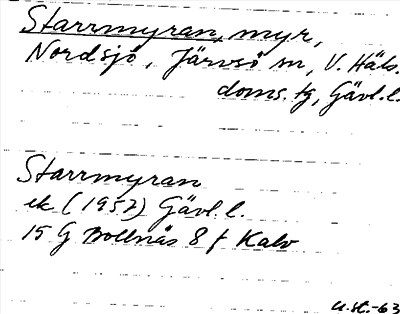 Starrmyran, myr,
Nordsjö, Järvsö sn, V. Häls.
doms. tg, Gävl. l.
Starrmyran
ek (1957) Gävl. l.
15 G Bollnäs 8 f Kalv
U.St.-63